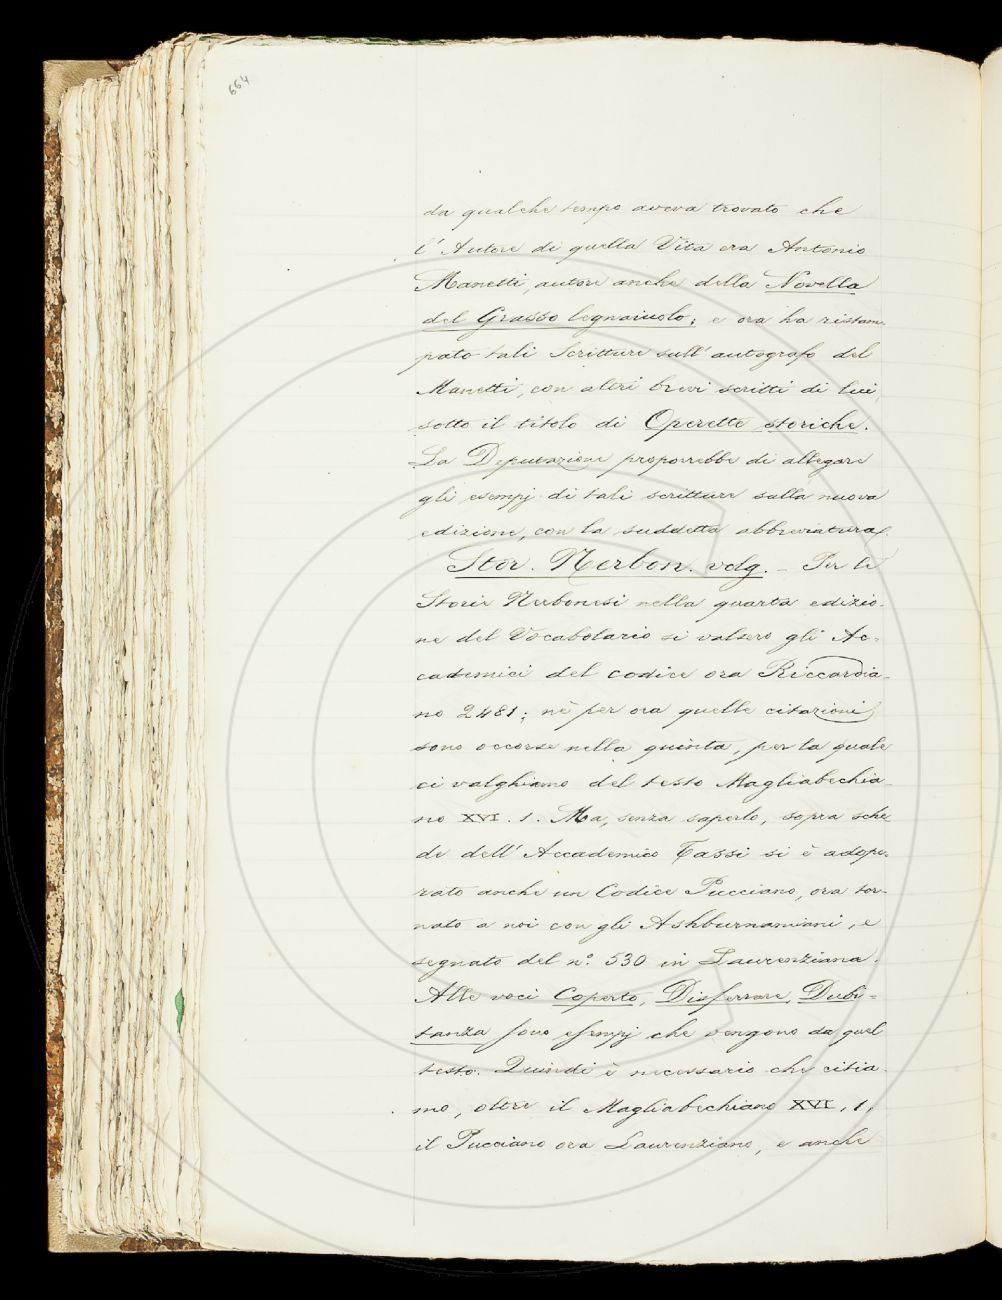 664
da qualche tempo aveva trovato che
l'Autore di quella Vita era Antonio
Manetti, autore anche della Novella
del Grasso legnaiuolo; e ora ha ristam-
pato tali Scritture sull'autografo del
Manetti, con altri brevi scritti di lui,
sotto il titolo di Operette storiche.
La Deputazione proporrebbe di allegare
gli esempj di tali scritture sulla nuova
edizione, con la suddetta abbreviatura.
Stor. Nerbon. volg. – Per le
Storie Nerbonesi nella quarta edizio-
ne del Vocabolario si valsero gli Ac-
cademici del codice ora Riccardia-
no 2481; nè per ora quelle citazioni
sono occorse nella quinta, per la quale
ci valghiamo del testo Magliabechia-
no XVI. 1. Ma, senza saperlo, sopra sche-
de dell'Accademico Tassi si è adope-
rato anche un Codice Pucciano, ora tor-
nato a noi con gli Ashburnamiani, e
segnato del nº. 530 in Laurenziana.
Alle voci Coperto, Disferrare, Dubi-
tanza sono esempj che vengono da quel
testo. Quindi è necessario che citia-
mo, oltre il Magliabechiano XVI, 1,
il Pucciano ora Laurenziano, e anche